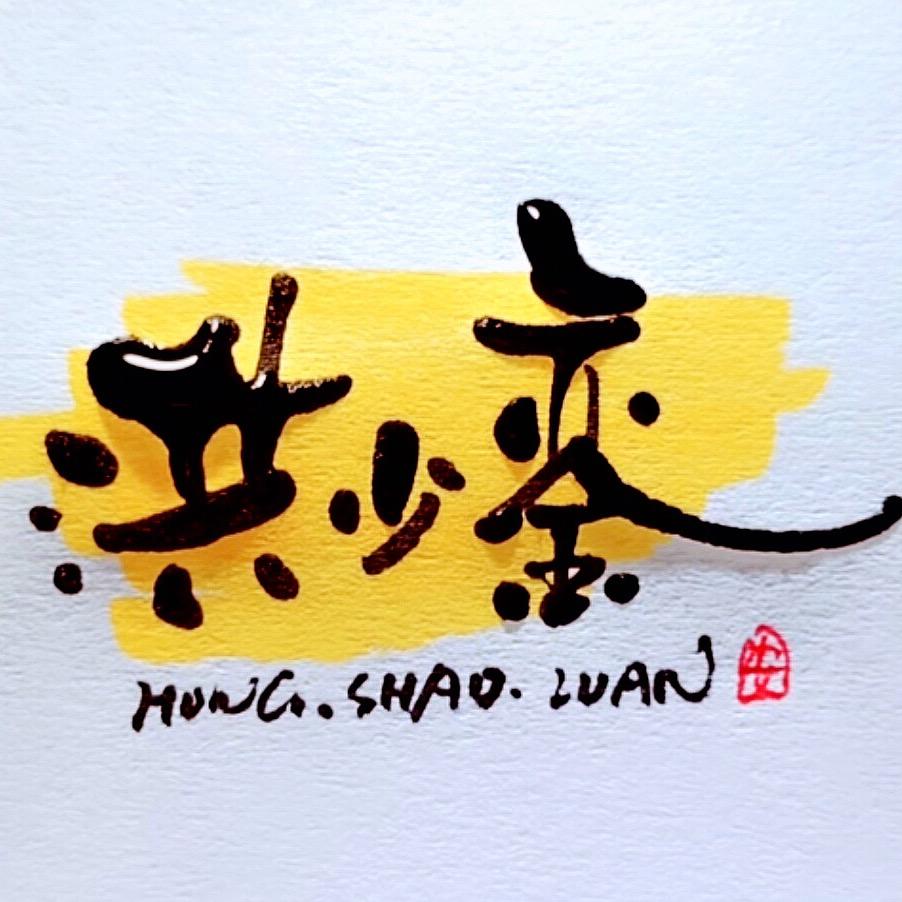 洪少銮
HONG.SHAO.LUAN